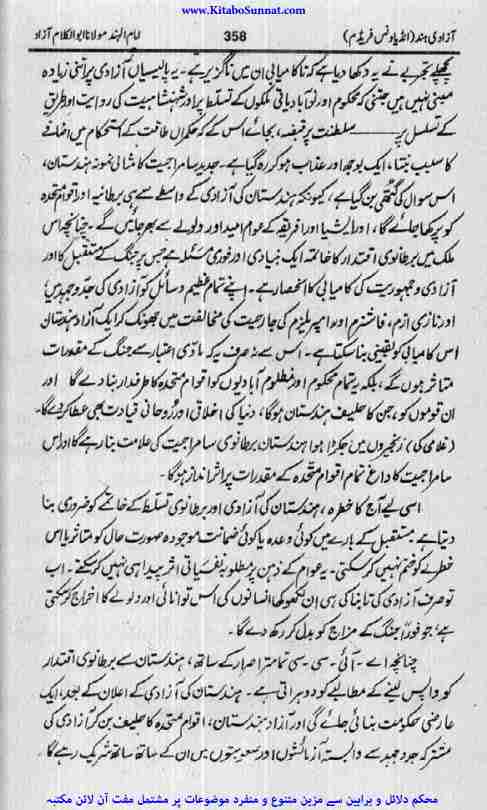 www.KitaboSunnat.com
آزادی ہند (انڈیا ونس فریڈم) 358 امام الہند مولانا ابوالکلام آزاد
پچھلے تجربے نے یہ دکھا دیا ہے کہ ناکامیابی ان میں ناگزیر ہے۔ یہ پالیسیاں آزادی پر اتنی زیادہ
مبنی نہیں ہیں جتنی کہ محکوم اور نوآبادیاتی ملکوں کے تسلط پر اور شہنشاہیت کی روایت اور طریق
کے تسلسل پر ——— سلطنت پر قبضہ، بجائے اس کے کہ حکمراں طاقت کے استحکام میں اضافے
کا سبب بنتا، ایک بوجھ اور عذاب ہو کر رہ گیا ہے۔ جدید سامراجیت کا مثالی نمونہ ہندستان،
اس سوال کی گتھی بن گیا ہے، کیونکہ ہندستان کی آزادی کے واسطے سے ہی برطانیہ اور اقوام متحدہ
کو پرکھا جائے گا، اور ایشیا اور افریقہ کے عوام امید اور ولولے سے بھر جائیں گے۔ چنانچہ اس
ملک میں برطانوی اقتدار کا خاتمہ ایک بنیادی اور فوری مسئلہ ہے جس پر جنگ کے مستقبل کا اور
آزادی و جمہوریت کی کامیابی کا انحصار ہے۔ اپنے تمام عظیم وسائل کو آزادی کی جدوجہد میں
اور نازی ازم، فاشزم اور امپیریلزم کی جارحیت کی مخالفت میں جھونک کر ایک آزاد ہندستان
اس کامیابی کو یقینی بنا سکتا ہے۔ اس سے نہ صرف یہ کہ مادّی اعتبار سے جنگ کے مقدرات
متاثر ہوں گے، بلکہ یہ تمام محکوم اور مظلوم آبادیوں کو اقوام متحدہ کا طرفدار بنا دے گا اور
ان قوموں کو، جن کا حلیف ہندستان ہوگا، دنیا کی اخلاقی اور روحانی قیادت بھی عطا کر دے گا۔
(غلامی کی) زنجیروں میں جکڑا ہوا ہندستان برطانوی سامراجیت کی علامت بنا رہے گا اور اس
سامراجیت کا داغ تمام اقوام متحدہ کے مقدرات پر اثر انداز ہوگا۔
اسی لیے آج کا خطرہ، ہندستان کی آزادی اور برطانوی تسلط کے خاتمے کو ضروری بنا
دیتا ہے۔ مستقبل کے بارے میں کوئی وعدہ یا کوئی ضمانت موجودہ صورت حال کو متاثر یا اس
خطرے کو ختم نہیں کر سکتی۔ یہ عوام کے ذہن پر مطلوبہ نفسیاتی اثر پیدا ہی نہیں کر سکتے۔ اب
تو صرف آزادی کی تابناکی ہی ان لکھوکھا انسانوں کی اس توانائی اور ولولے کا اخراج کر سکتی
ہے، جو فوراً جنگ کے مزاج کو بدل کر رکھ دے گا۔
چنانچہ اے۔ آئی۔ سی۔ سی تمام تر اصرار کے ساتھ، ہندستان سے برطانوی اقتدار
کو واپس لینے کے مطالبے کو دوہراتی ہے۔ ہندستان کی آزادی کے اعلان کے بعد، ایک
عارضی حکومت بنائی جائے گی اور آزاد ہندستان، اقوام متحدہ کا حلیف بن کر آزادی کی
مشترکہ جدوجہد سے وابستہ آزمائشوں اور صعوبتوں میں ان کے ساتھ ساتھ شریک رہے گا۔
محکم دلائل و براہین سے مزین متنوع و منفرد موضوعات پر مشتمل مفت آن لائن مکتبہ